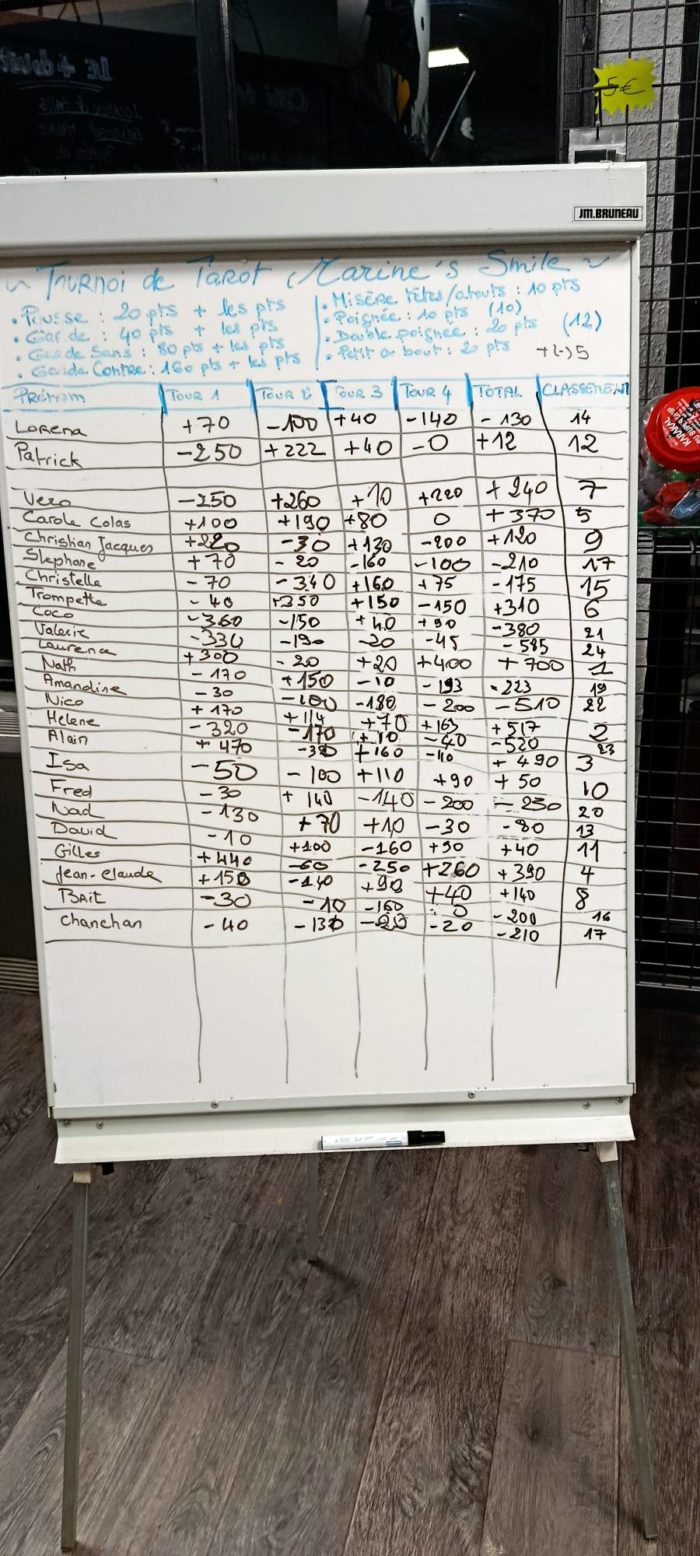 LE +
5€
JM.BRUNEAU
~ Tournoi de Tarot Marine's Smile ~
• Pousse : 20 pts + les pts
• Garde : 40 pts + les pts
• Garde Sans : 80 pts + les pts
• Garde Contre : 160 pts + les pts
• Misère têtes/atouts : 10 pts
• Poignée : 10 pts (10)
• Double poignée : 20 pts (12)
• Petit au bout : 20 pts +(-) 5
PRÉNOM TOUR 1 TOUR 2 TOUR 3 TOUR 4 TOTAL CLASSEMENT
Lorena +70 -100 +40 -140 -130 14
Patrick -250 +222 +40 -0 +12 12
Vero -250 +260 +10 +220 +240 7
Carole Colas +100 +190 +80 0 +370 5
Christian Jacques +220 -30 +130 -200 +120 9
Stephane +70 -20 -160 -100 -210 17
Christelle -70 -340 +160 +75 -175 15
Trompette -40 +350 +150 -150 +310 6
Coco -360 -150 +40 +90 -380 21
Valerie -330 -190 -20 -45 -585 24
Laurence +300 -20 +20 +400 +700 1
Nath -170 +150 -10 -193 -223 19
Amandine -30 -100 -180 -200 -510 22
Nico +170 +114 +70 +163 +517 2
Helene -320 -170 +10 -40 -520 23
Alain +470 +160 +490 3
Isa -50 -100 +110 +90 +50 10
Fred -30 +140 -140 -200 -230 20
Nad -130 +70 +10 -30 -80 13
David -10 +100 -160 +90 +40 11
Gilles +440 -60 -250 +260 +390 4
Jean-Claude +150 -140 +90 +40 +140 8
BAit -30 -10 -160 0 -200 16
Chanchan -40 -130 -20 -20 -210 17